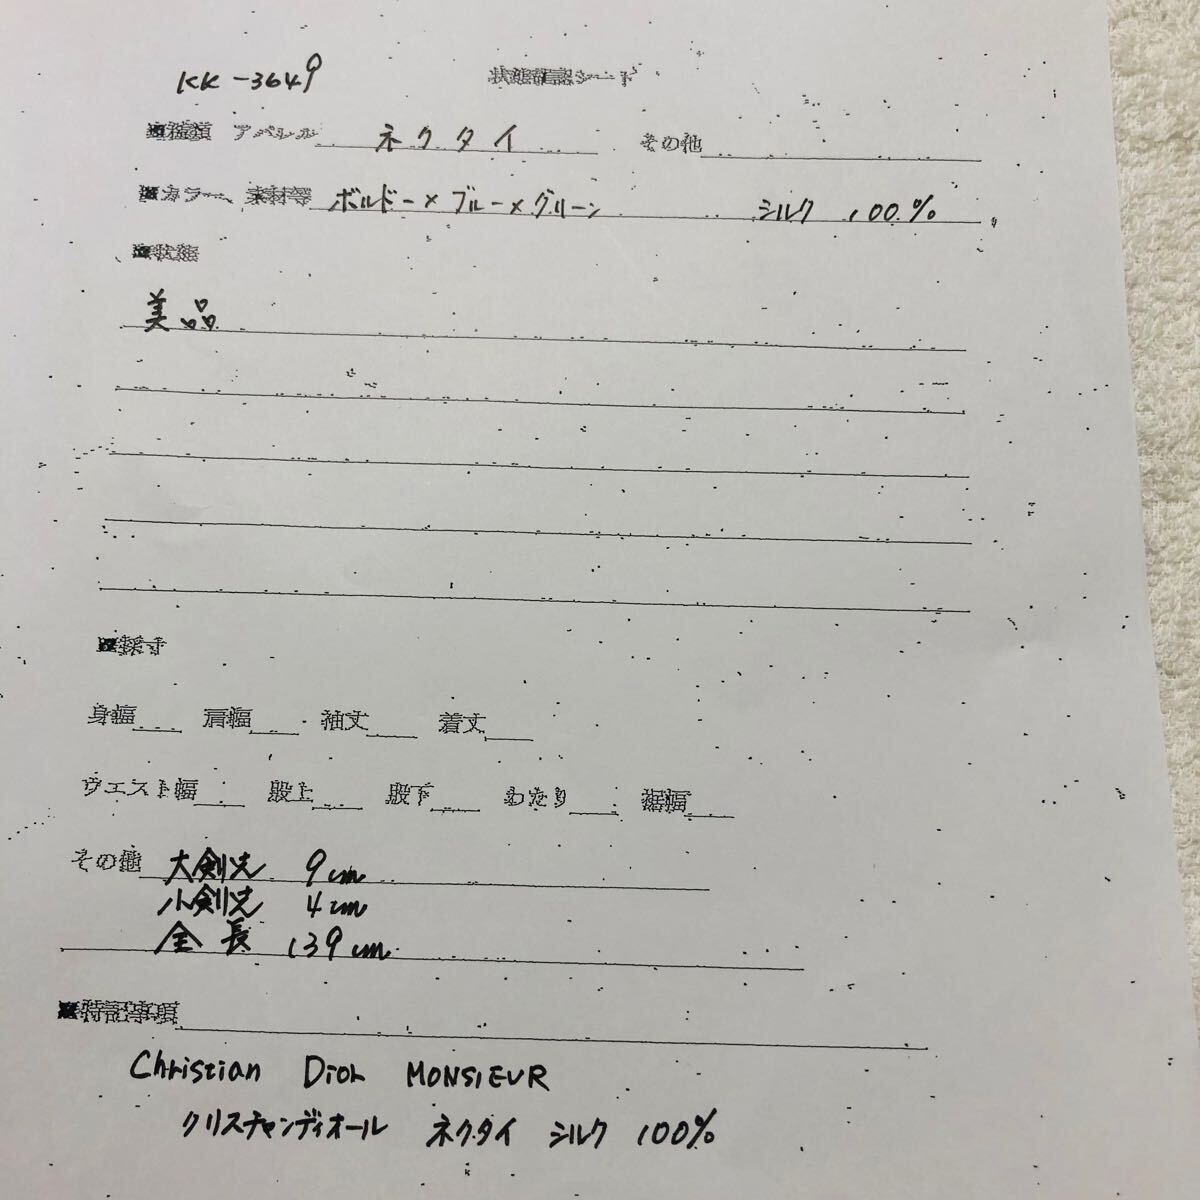 KK-3649
状態確認シート
■種類 アパレル ネクタイ その他
■カラー、素材等 ボルドー×ブルー×グリーン シルク 100%
■状態
美品
■採寸
身幅 肩幅 袖丈 着丈
ウエスト幅 股上 股下 わたり 裾幅
その他 大剣先 9cm
小剣先 4cm
全長 139cm
■特記事項
Christian Dior MONSIEUR
クリスチャンディオール ネクタイ シルク 100%